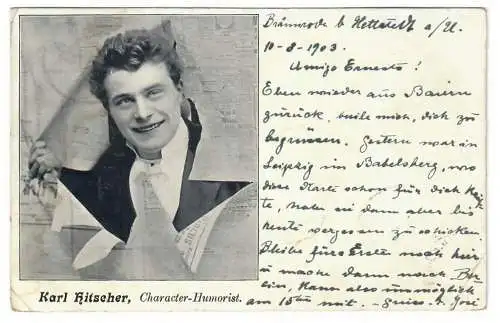 Bräunrode b Hettstedt a/U.
10-8-1903.
Amigo Ernesto!
Eben wieder aus Baiern
zurück, beile mich, dich zu
begrüssen. Gestern war in
Leipzig im Babelsberg, wo
diese Karte schon für dich
habe sie dann aber bis
heute vergessen zu schicken.
Bleibe fürs Erste noch hier
u mache dann nach Ber
lin, kann also unmöglich
am 15ten mit. - Gruss d. José
Karl Hitscher, Character-Humorist.